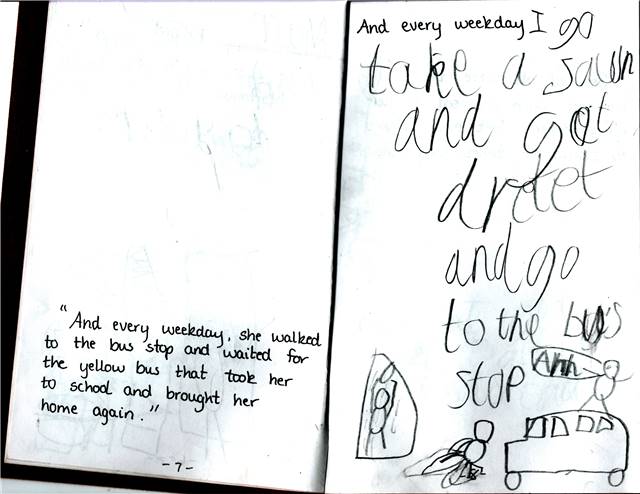 "And every weekday, she walked
to the bus stop and waited for
the yellow bus that took her
to school and brought her
home again."
-7-
And every weekday I go
take a
and got
and go
to the bus
stop
Ahh